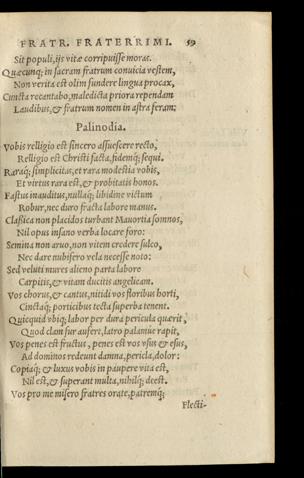 FRATR. FRATERRIMI. 59
Sit populi, ijs vitæ corripuisse moras.
Quæcunq; in sacram fratrum conuicia vestem,
Non verita est olim fundere lingua procax,
Cuncta recantabo, maledicta priora rependam
Laudibus, & fratrum nomen in astra feram.
Palinodia.
Vobis relligio est sincero assuescere recto,
Relligio est Christi facta, fidemq; sequi.
Raraq; simplicitas, et rara modestia vobis,
Et virtus rara est, & probitatis honos.
Fastus inauditus, nullaq; libidine victum
Robur, nec duro fracta labore manus.
Classica non placidos turbant Mauortia somnos,
Nil opus insano verba locare foro:
Semina non aruo, non vitem credere sulco,
Nec dare nubifero vela necesse noto:
Sed veluti mures alieno parta labore
Carpitis, & vitam ducitis angelicam.
Vos chorus, & cantus, nitidi vos floribus horti,
Cinctaq; porticibus tecta superba tenent.
Quicquid vbiq; labor per dura pericula quærit,
Quod clam fur aufert, latro palamue rapit,
Vos penes est fructus, penes est vos vsus & esus,
Ad dominos redeunt damna, pericla, dolor:
Copiaq; & luxus vobis in paupere vita est,
Nil est, & superant multa, nihilq; deest.
Vos pro me misero fratres orate, patremq;
Flecti-